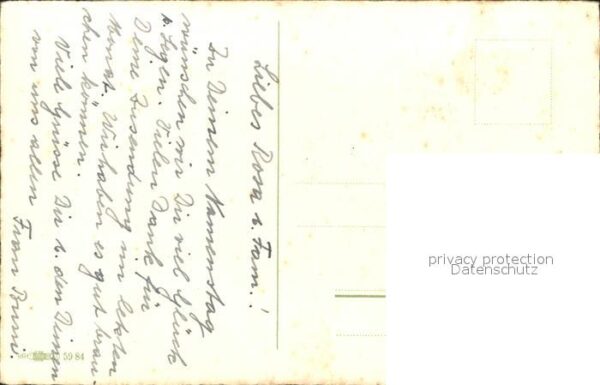 Liebes Rosa u. Fam.!
Zu Deinem Namenstag
wünschen wir Dir viel Glück
u. Segen. Vielen Dank für
Deine Zusendung im letzten
Monat. Wir haben es gut brau-
chen können.
Viele Grüsse Dir u. den Deinen
von uns allen
Fran
privacy protection
Datenschutz
59 84